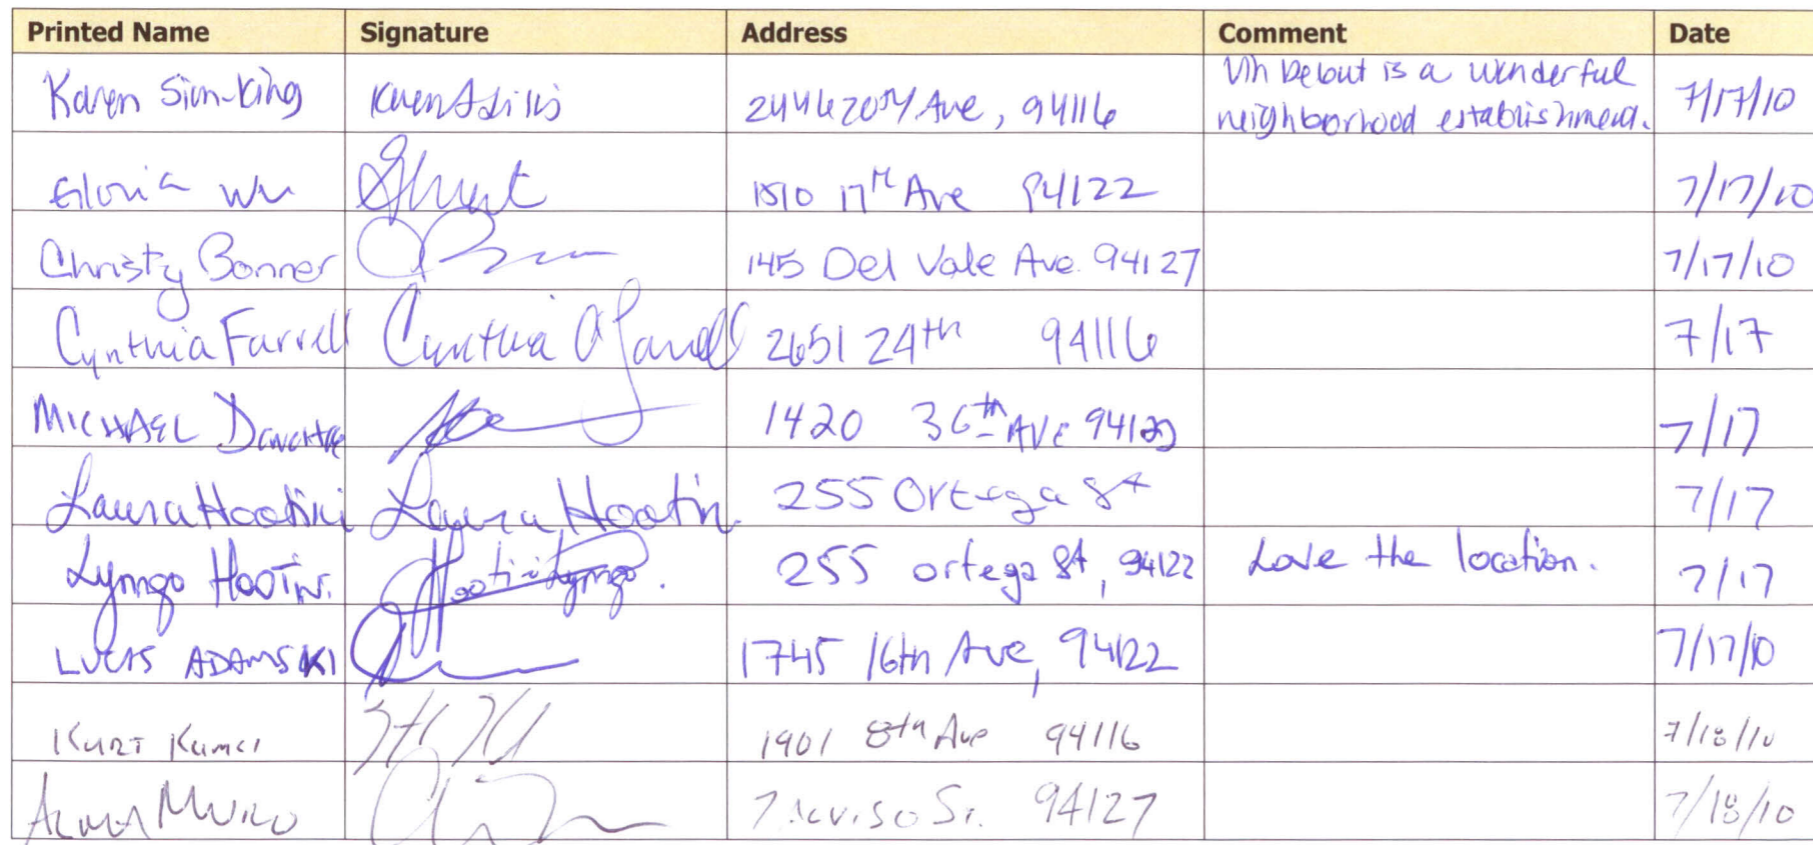 Printed Name Signature Address Comment Date
Karen Sim-King 2446 20th Ave, 94116 Vin Debut is a wonderful neighborhood establishment. 7/17/10
Gloria Wu 1810 17th Ave 94122 7/17/10
Christy Bonner 145 Del Vale Ave. 94127 7/17/10
Cynthia Farrell Cynthia A Farrell 2651 24th 94116 7/17
MICHAEL 1420 36th AVE 94122 7/17
Laura Hootini Laura Hootin 255 Ortega St 7/17
Lymgo Hootin. Hootin Lymgo. 255 ortega St, 94122 Love the location. 7/17
LUCAS ADAMSKI 1745 16th Ave, 94122 7/17/10
KURT 1901 8th Ave 94116 7/18/10
94127 7/18/10